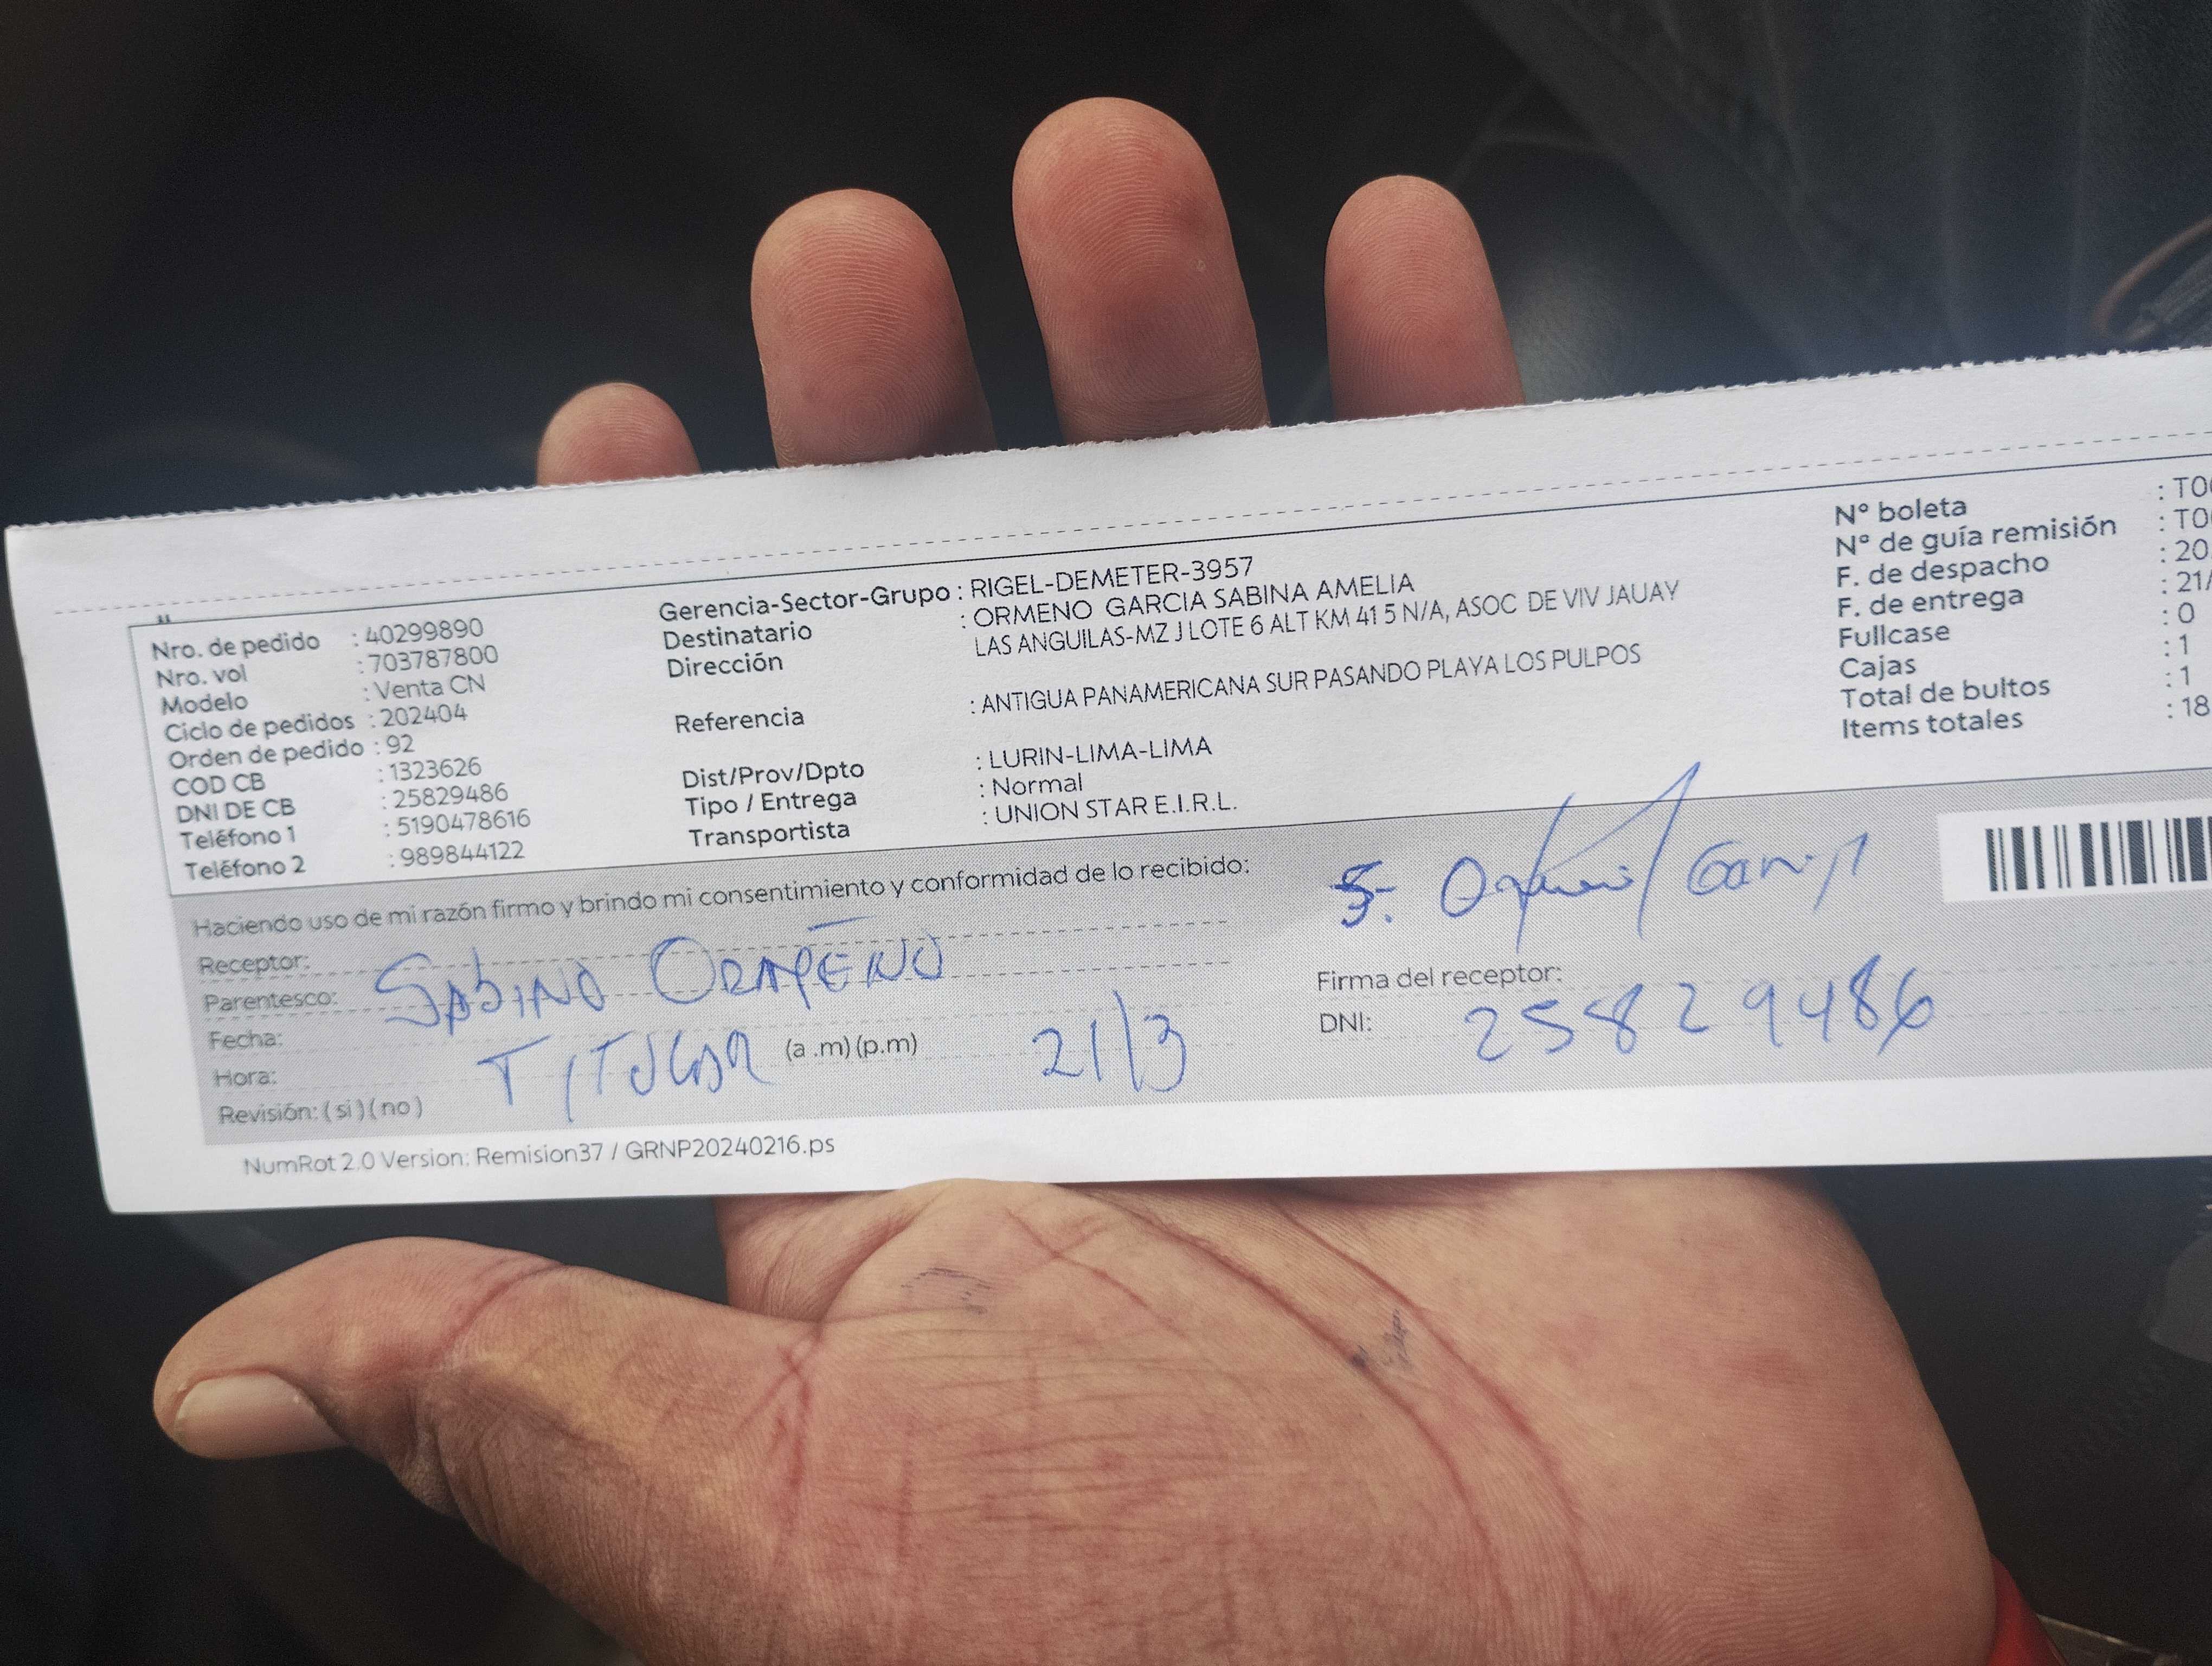 Nro. de pedido : 40299890
Nro. vol : 703787800
Modelo : Venta CN
Ciclo de pedidos : 202404
Orden de pedido : 92
COD CB : 1323626
DNI DE CB : 25829486
Teléfono 1 : 5190478616
Teléfono 2 : 989844122
Gerencia-Sector-Grupo : RIGEL-DEMETER-3957
Destinatario : ORMENO GARCIA SABINA AMELIA
Dirección LAS ANGUILAS-MZ J LOTE 6 ALT KM 41 5 N/A, ASOC DE VIV JAUAY
Referencia : ANTIGUA PANAMERICANA SUR PASANDO PLAYA LOS PULPOS
Dist/Prov/Dpto : LURIN-LIMA-LIMA
Tipo / Entrega : Normal
Transportista : UNION STAR E.I.R.L.
Nº boleta : T00
Nº de guía remisión : T00
F. de despacho : 20
F. de entrega : 21/
Fullcase : 0
Cajas : 1
Total de bultos : 1
Items totales : 18
Haciendo uso de mi razón firmo y brindo mi consentimiento y conformidad de lo recibido:
Receptor:
Parentesco: SABINA ORMEÑO
Fecha:
Hora: TITULAR (a .m) (p.m) 21/3
Revisión: ( si ) ( no )
Firma del receptor:
DNI: 25829486
NumRot 2.0 Version: Remision37 / GRNP20240216.ps